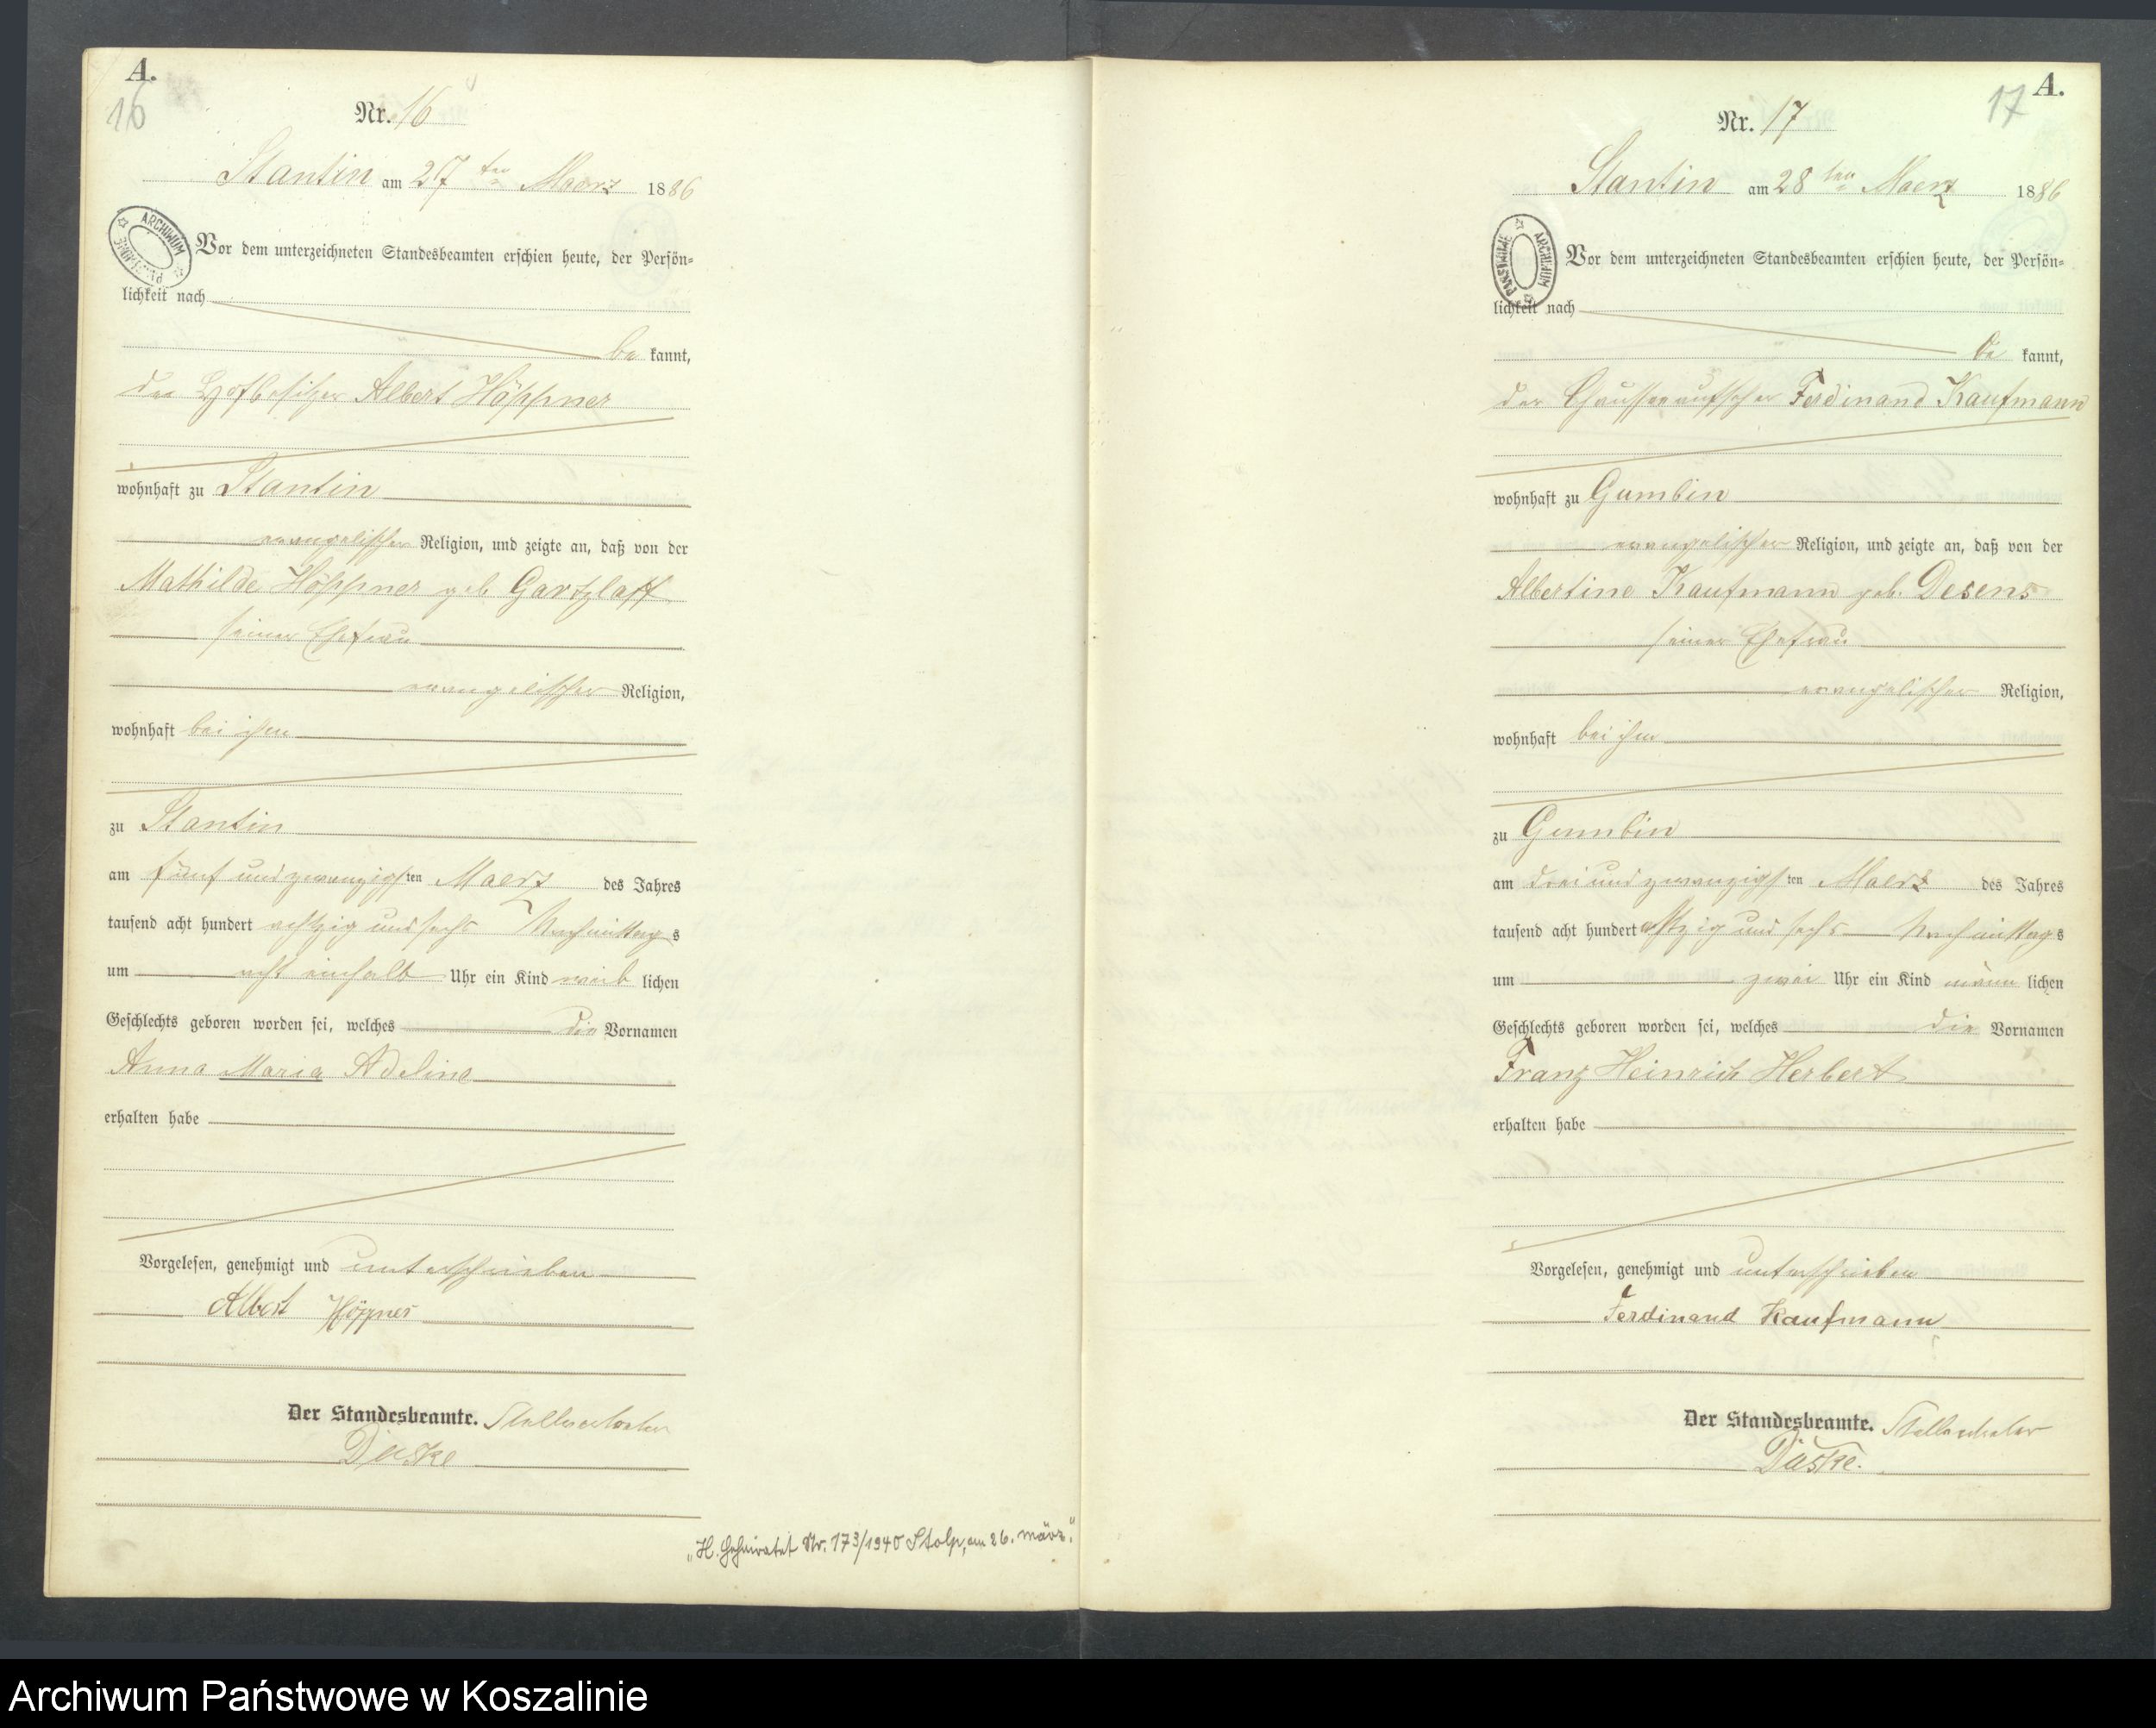 A.
16
Nr. 16
Stantin am 27ten Maerz 1886
ARCHIWUM PAŃSTWOWE
Vor dem unterzeichneten Standesbeamten erschien heute, der Persön-
lichkeit nach
be kannt,
der Hofbesitzer Albert Höppner
wohnhaft zu Stantin
evangelischer Religion, und zeigte an, daß von der
Mathilde Höppner geb. Gartzlaff
seiner Ehefrau
evangelischer Religion,
wohnhaft bei ihm
zu Stantin
am fünf und zwanzigsten Maerz des Jahres
tausend acht hundert achtzig und sechs Nachmittags
um acht einhalb Uhr ein Kind weib lichen
Geschlechts geboren worden sei, welches die Vornamen
Anna Maria Adeline
erhalten habe
Vorgelesen, genehmigt und unterschrieben
Albert Höppner
Der Standesbeamte. Stellvertreter
"H. Geheiratet Nr. 173/1940 Stolp, am 26. März."
A.
17
Nr. 17
Stantin am 28ten Maerz 1886
ARCHIWUM PAŃSTWOWE
Vor dem unterzeichneten Standesbeamten erschien heute, der Persön-
lichkeit nach
be kannt,
der Chausseeaufseher Ferdinand Kaufmann
wohnhaft zu Gumbin
evangelischer Religion, und zeigte an, daß von der
Albertine Kaufmann geb. Desens
seiner Ehefrau
evangelischer Religion,
wohnhaft bei ihm
zu Gumbin
am drei und zwanzigsten Maerz des Jahres
tausend acht hundert achtzig und sechs Nachmittags
um zwei Uhr ein Kind männ lichen
Geschlechts geboren worden sei, welches die Vornamen
Franz Heinrich Herbert
erhalten habe
Vorgelesen, genehmigt und unterschrieben
Ferdinand Kaufmann
Der Standesbeamte. Stellvertreter
Archiwum Państwowe w Koszalinie